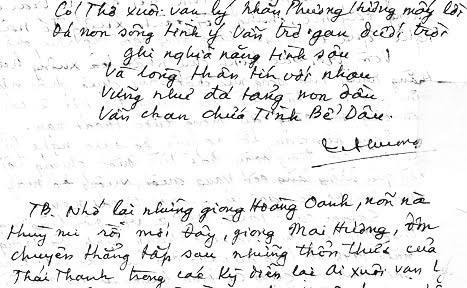 Có! Thơ xuôi vạn lý nhắn Phương Hướng mấy lời
Dù non sông tình ý vẫn trơ gan dưới trời
ghi nghĩa nặng tình sâu
Và lòng thân tín với nhau
Vững như đá tảng non đầu
Vẫn chan chứa Tình Bể Dâu.
TB. Nhớ lại những giọng Hoàng Oanh, nõn nà
thùy mị rồi mới đây, giọng Mai Hương, đôn
chuyện thẳng tắp sau những thổn thức của
Thái Thanh trong các kỳ diễn lại Ai xuôi vạn l